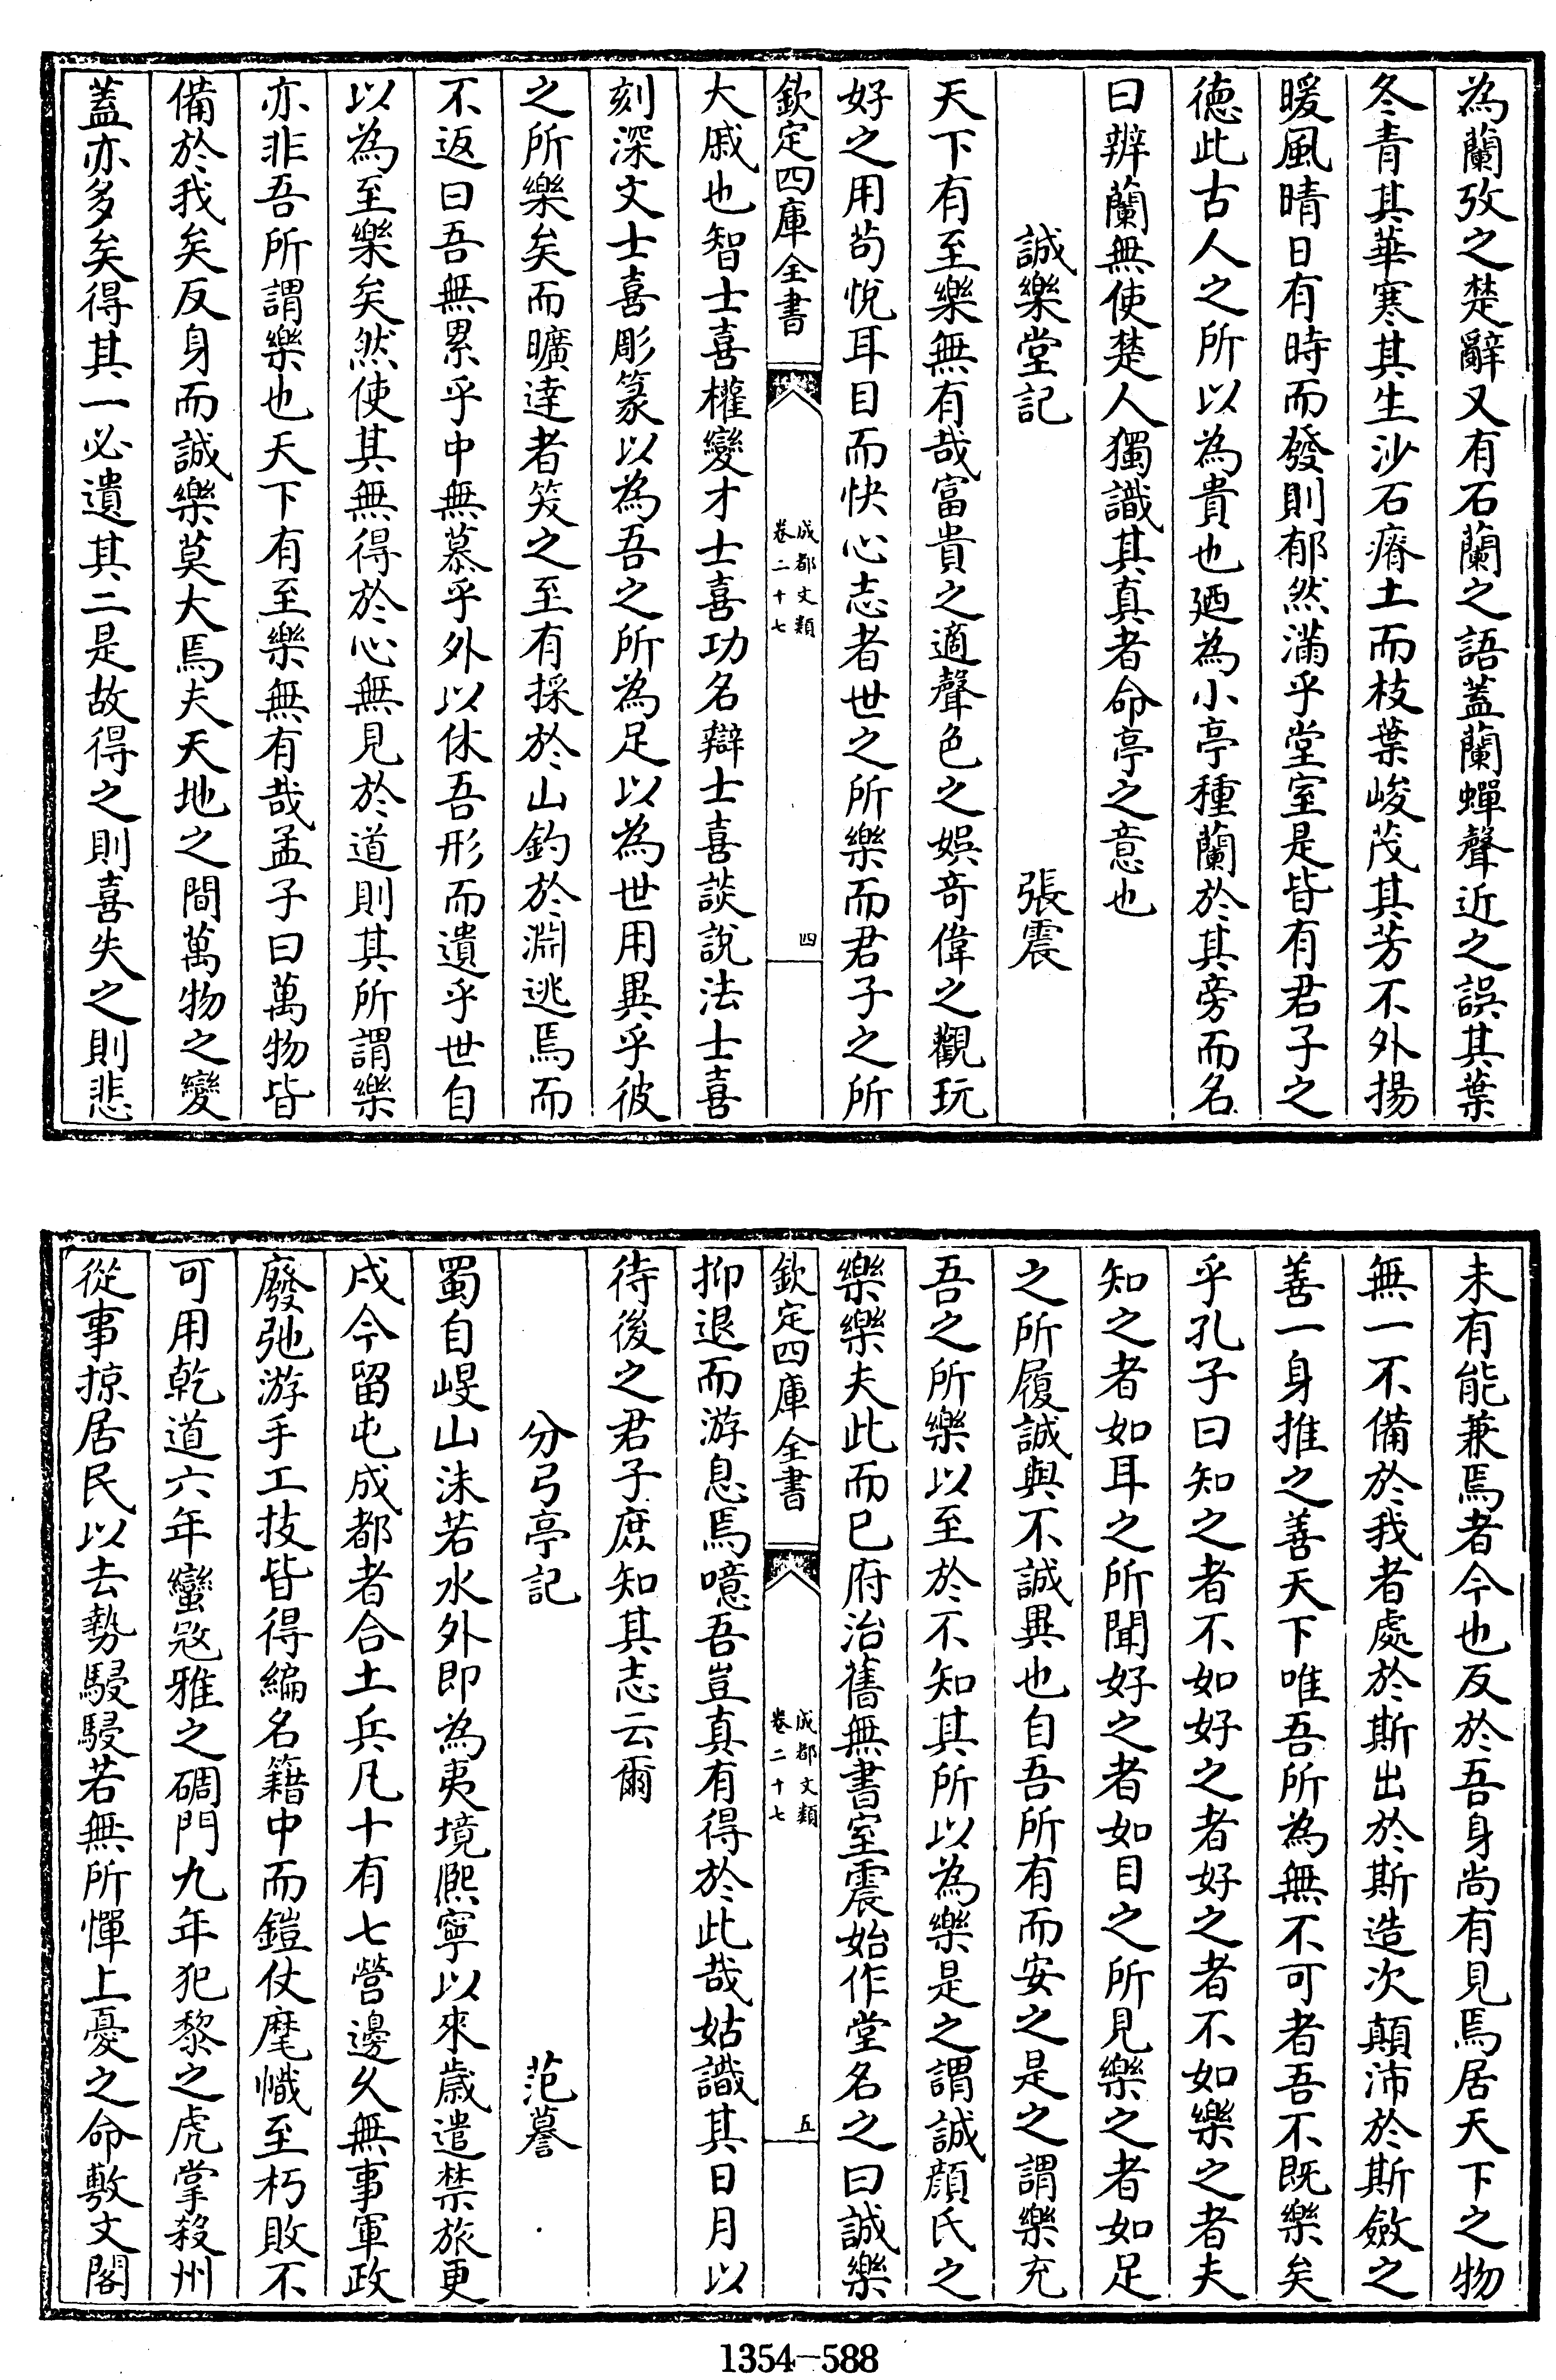 為蘭攷之楚辭又有石蘭之語蓋蘭蟬聲近之誤其葉
冬青其華寒其生沙石瘠土而枝葉峻茂其芳不外揚
暖風晴日有時而發則郁然滿乎堂室是皆有君子之
德此古人之所以為貴也廼為小亭種蘭於其旁而名
曰辨蘭無使楚人獨識其真者命亭之意也
誠樂堂記　張震
天下有至樂無有哉富貴之適聲色之娛奇偉之觀玩
好之用苟悅耳目而快心志者世之所樂而君子之所
欽定四庫全書　成都文類卷二十七　四
大戚也智士喜權變才士喜功名辯士喜談說法士喜
刻深文士喜彫篆以為吾之所為足以為世用異乎彼
之所樂矣而曠達者笑之至有採於山釣於淵逃焉而
不返曰吾無累乎中無慕乎外以休吾形而遺乎世自
以為至樂矣然使其無得於心無見於道則其所謂樂
亦非吾所謂樂也天下有至樂無有哉孟子曰萬物皆
備於我矣反身而誠樂莫大焉夫天地之間萬物之變
蓋亦多矣得其一必遺其二是故得之則喜失之則悲
未有能兼焉者今也反於吾身尚有見焉居天下之物
無一不備於我者處於斯出於斯造次顛沛於斯斂之
善一身推之善天下唯吾所為無不可者吾不既樂矣
乎孔子曰知之者不如好之者好之者不如樂之者夫
知之者如耳之所聞好之者如目之所見樂之者如足
之所履誠與不誠異也自吾所有而安之是之謂樂充
吾之所樂以至於不知其所以為樂是之謂誠顏氏之
樂樂夫此而已府治舊無書室震始作堂名之曰誠樂
欽定四庫全書　成都文類卷二十七　五
抑退而游息焉噫吾豈真有得於此哉姑識其日月以
待後之君子庶知其志云爾
分弓亭記　范謩
蜀自㟭山沬若水外即為夷境熈寧以來歲遣禁旅更
戍今留屯成都者合土兵凡十有七營邊久無事軍政
廢弛游手工技皆得編名籍中而鎧仗麾幟至朽敗不
可用乾道六年蠻冦雅之碉門九年犯黎之虎掌殺州
從事掠居民以去勢駸駸若無所憚上憂之命敷文閣
1354—588